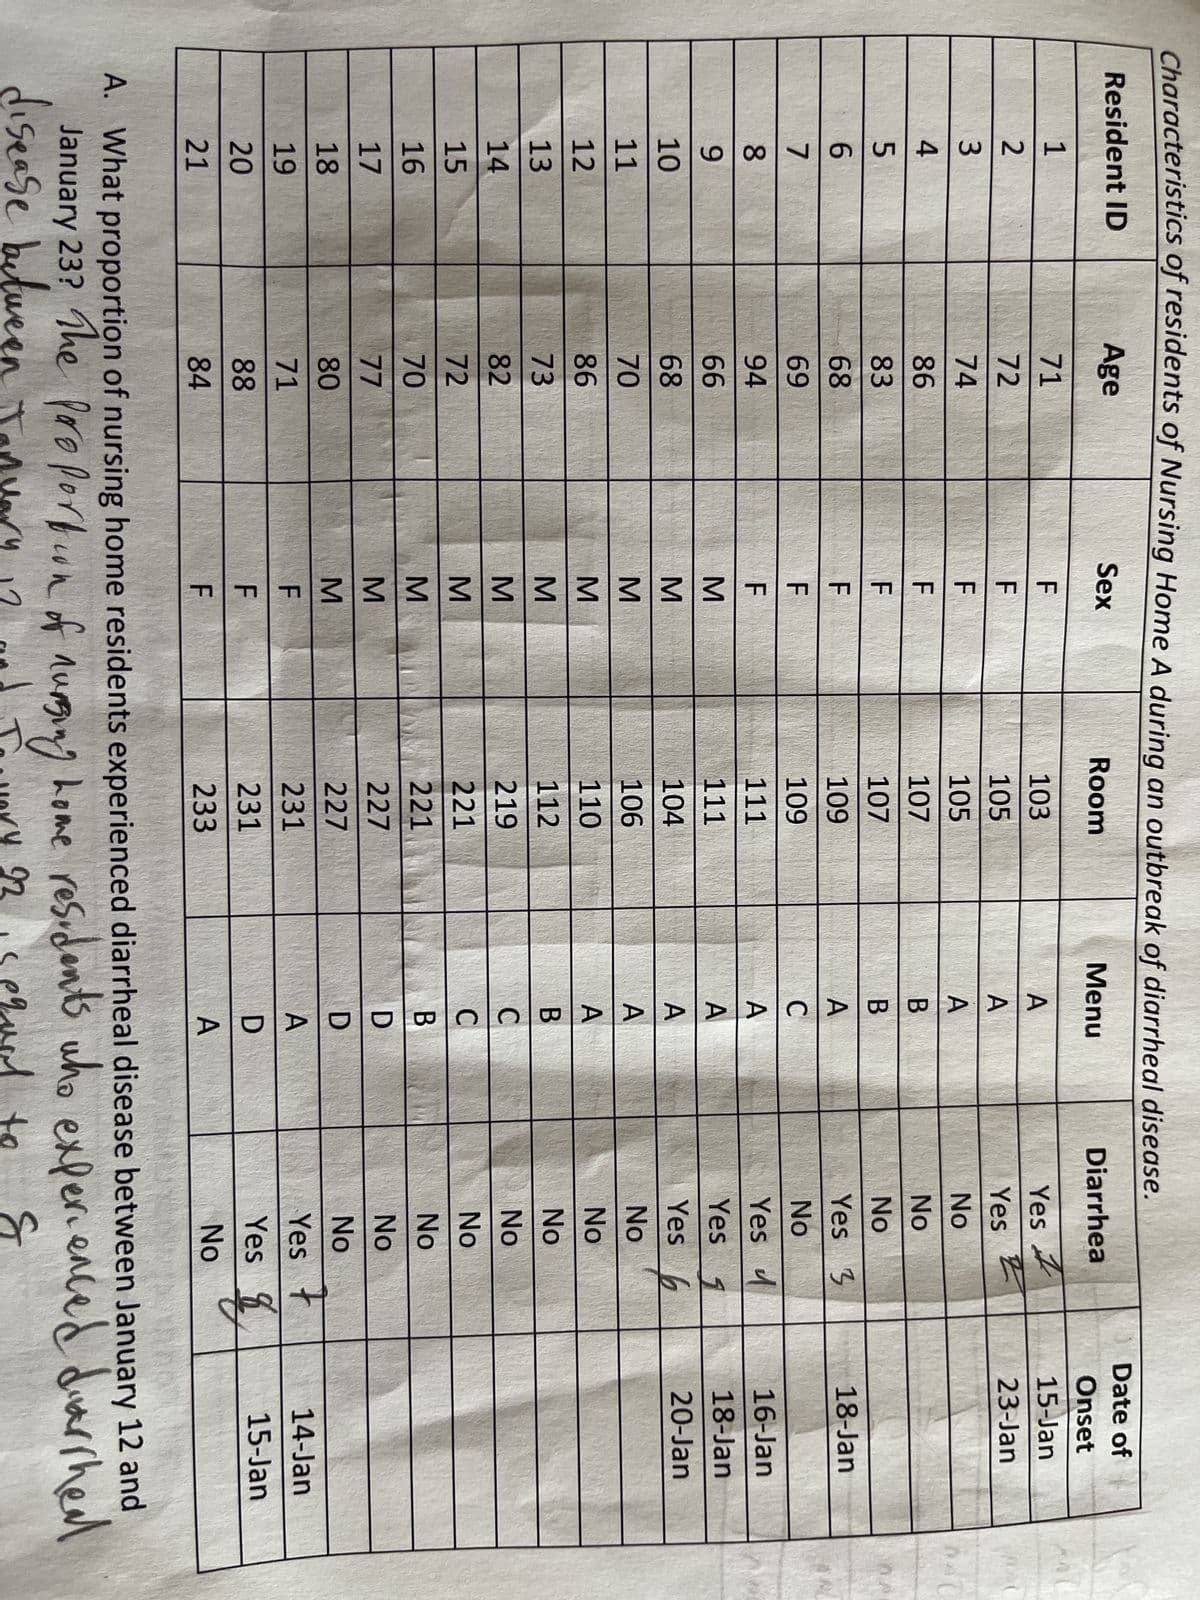 Characteristics of residents of Nursing Home A during an outbreak of diarrheal disease.
Resident ID Age Sex Room Menu Diarrhea Date of Onset
1 71 F 103 A Yes 15-Jan
2 72 F 105 A Yes 2 23-Jan
3 74 F 105 A No
4 86 F 107 B No
5 83 F 107 B No
6 68 F 109 A Yes 3 18-Jan
7 69 F 109 C No
8 94 F 111 A Yes 4 16-Jan
9 66 M 111 A Yes 18-Jan
10 68 M 104 A Yes 6 20-Jan
11 70 M 106 A No
12 86 M 110 A No
13 73 M 112 B No
14 82 M 219 C No
15 72 M 221 C No
16 70 M 221 B No
17 77 M 227 D No
18 80 M 227 D No
19 71 F 231 A Yes 7 14-Jan
20 88 F 231 D Yes 8 15-Jan
21 84 F 233 A No
A. What proportion of nursing home residents experienced diarrheal disease between January 12 and
January 23? The proportion of nursing home residents who experienced diarrheal
disease between January 12 and January 23 is equal to